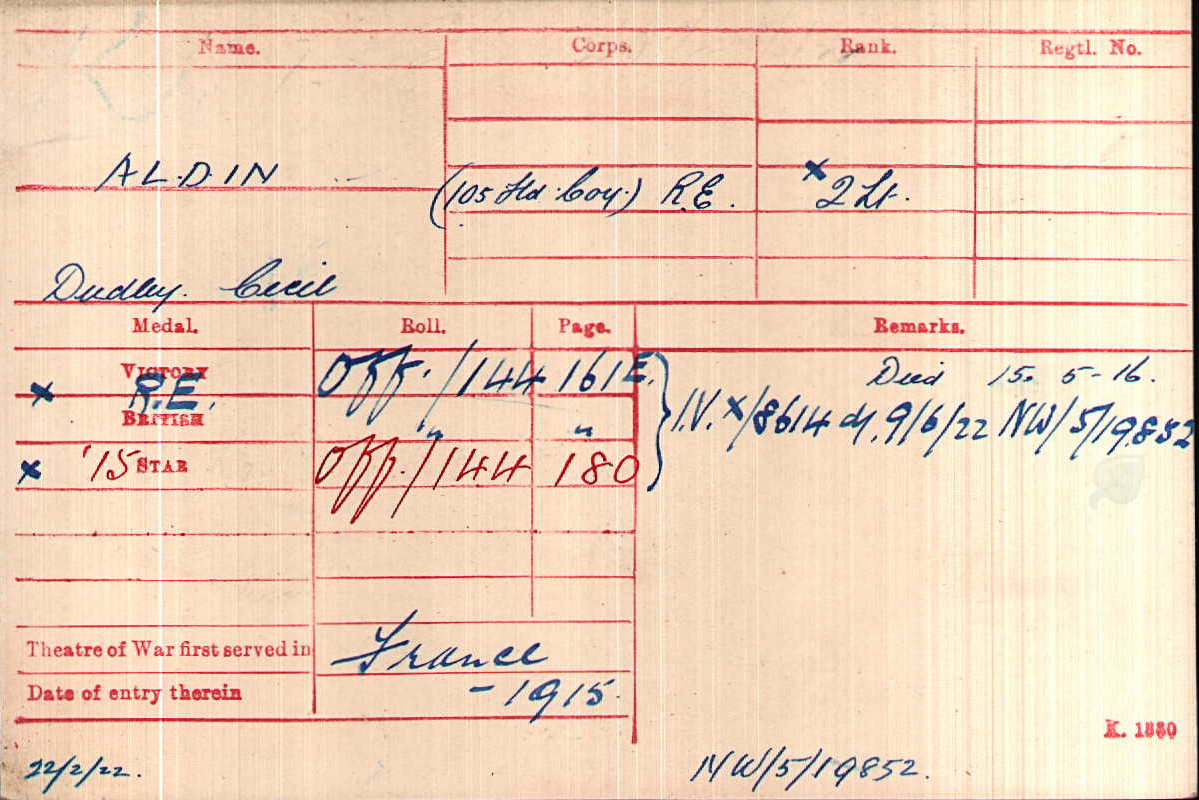 Name. Corps. Rank. Regtl. No.
ALDIN (105 Fld. Coy.) R.E. × 2 Lt.
Dudley. Cecil
Medal. Roll. Page. Remarks.
VICTORY Off./144 161E. Died 15. 5-16.
× R.E.
BRITISH " " } I.V. ×/8614 d/. 9/6/22 NW/5/19852
× '15 STAR Off./144 180
Theatre of War first served in France
Date of entry therein - 1915.
K. 1380
22/2/22. NW/5/19852.